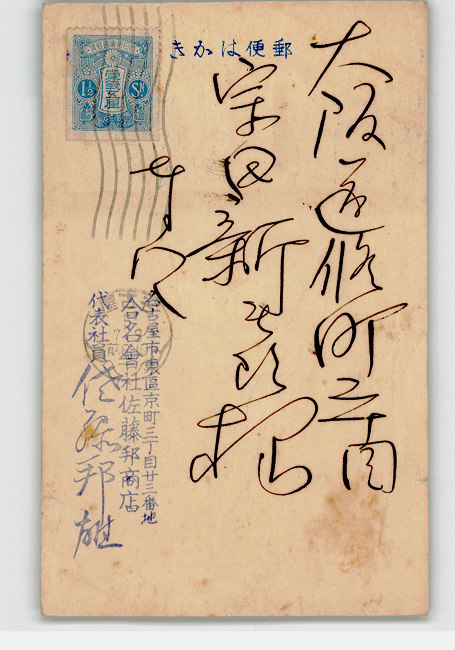 郵便はかき
1½ Sn
大阪道修町二丁目
宗田新太郎様
名古屋市東區京町三丁目廿三番地
合名會社佐藤邦商店
代表社員
佐藤邦雄